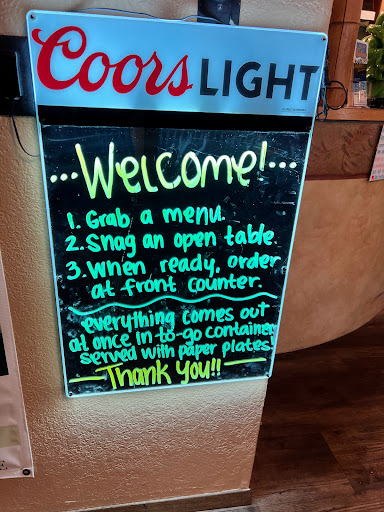 Coors LIGHT
...Welcome!...
1. Grab a menu.
2. Snag an open table.
3. When ready, order
at front counter.
everything comes out
at once in to-go container
served with paper plates!
—Thank you!!—